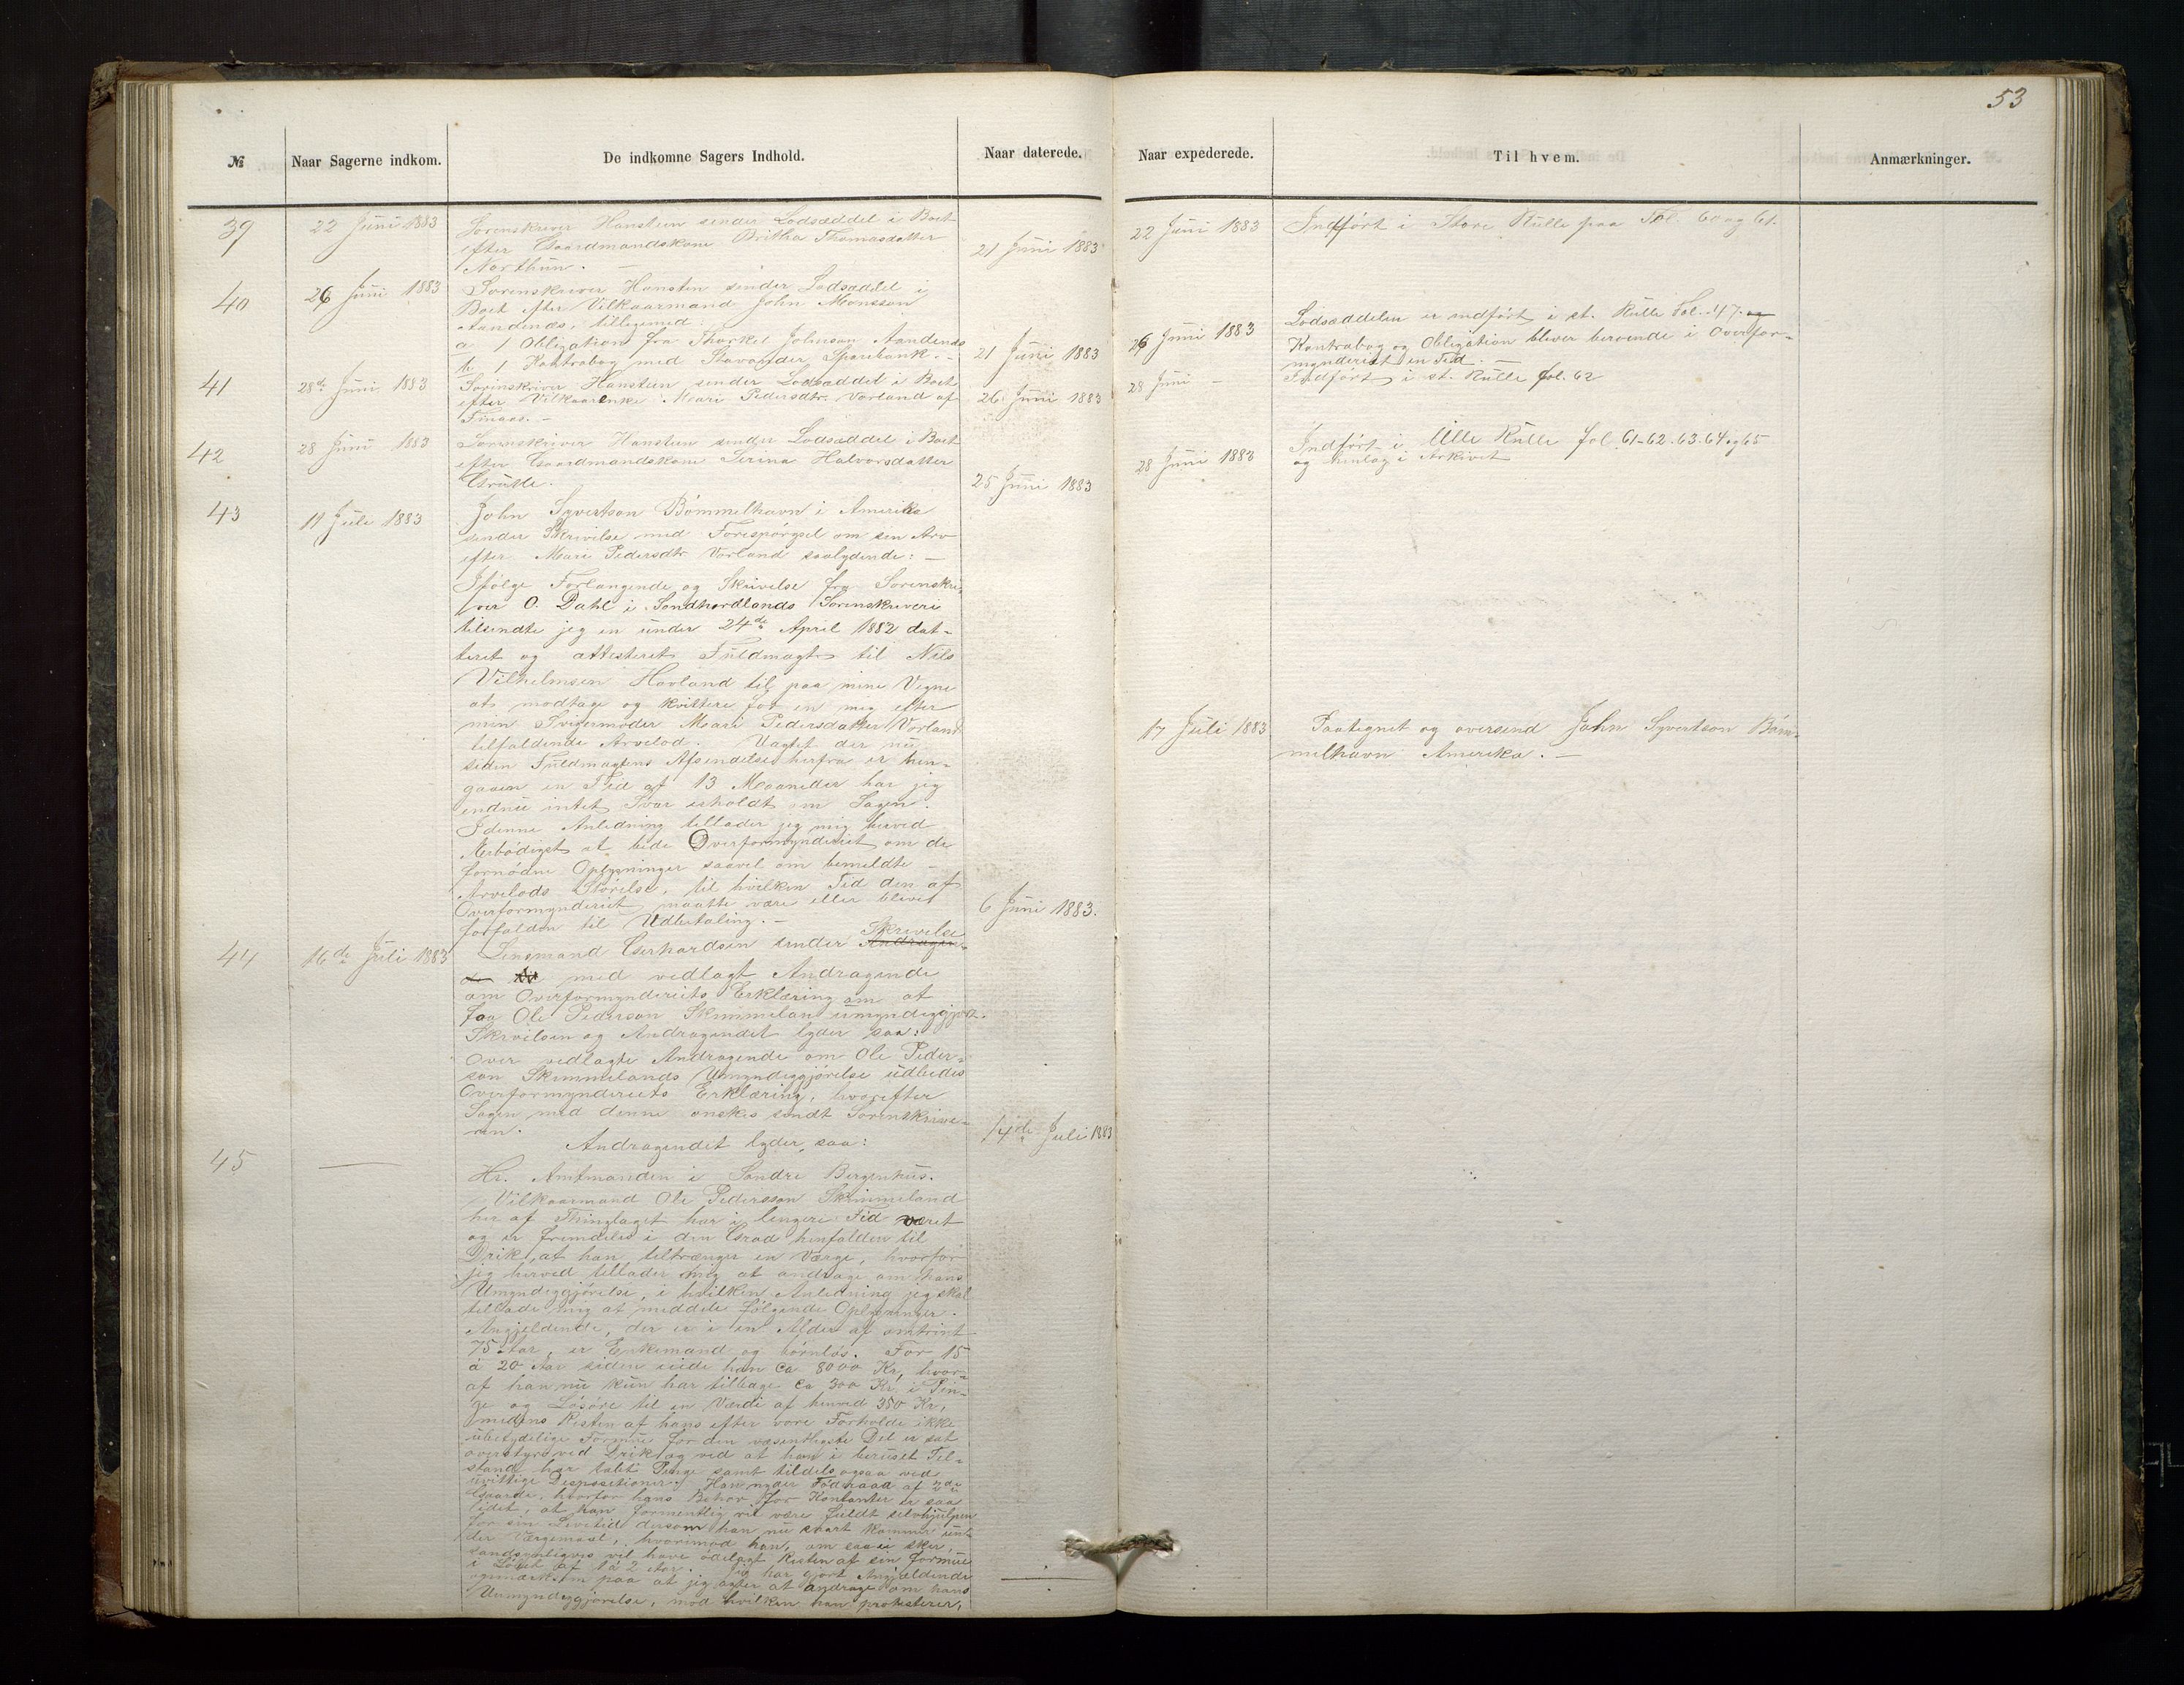 53
№ Naar Sagerne indkom. De indkomne Sagers Indhold. Naar daterede. Naar expederede. Til hvem. Anmærkninger.
39 22 Juni 1883
Sorenskriver Hanstein sender Lodsæddel i Boet
efter Gaardmandskone Britha Thomasdatter
Northun. —
21 Juni 1883
22 Juni 1883
Indført i Store Rulle paa Fol. 60 og 61.
40 26 Juni 1883
Sorenskriver Hanstein sender Lodsæddel i
Boet efter Vilkaarmand John Monsson
Aandenæs, tilligemed
a 1 Obligation fra Thorkel Johnson Aandenæs
b. 1 Kontrabog med Stavanger Sparebank. —
21 Juni 1883
26 Juni 1883
Lodsæddelen er indført i st. Rulle Fol. 47. og
Kontrabog og Obligation bliver beroende i Overfor-
mynderiet en Tid. —
41 28de Juni 1883
Sorenskriver Hanstein sender Lodsæddel i Boet
efter Vilkaarenke Mari Pedersdtr Vorland af
Finaas. —
26 Juni 1883
28 Juni —
Indført i st. Rulle fol. 62
42 28 Juni 1883
Sorenskriver Hanstein sender Lodsæddel i Boet
efter Gaardmandskone Serina Halvorsdatter
25 Juni 1883
28 Juni 1883
Indført i Lille Rulle fol 61-62.63.64 og 65
og henlag i Arkivet
43 11 Juli 1883
John Syvertson Bømmelhavn i Amerika
sender Skrivelse med Forespørgsel om sin Arv
efter Mari Pedersdtr Vorland saalydende: —
Ifølge Forlangende og Skrivelse fra Sorenskri-
ver O. Dahl i Søndhordlands Sorenskriveri
tilsendte jeg en under 24de April 1882 dat-
teret og attesteret Fuldmagt til Nils
Vilhelmsen Hovland til paa mine Vegne
at modtage og kvittere for en mig efter
min Svigermoder Mari Pedersdatter Vorland
tilfaldende Arvelod. Uagtet der nu
siden Fuldmagtens Afsendelse herfra er hen-
gaaen en Tid af 13 Maaneder har jeg
endnu intet Svar erholdt om Sagen.
I denne Anledning tillader jeg mig herved
Ærbødigst at bede Overformynderiet om de
fornødne Oplysninger saavel om bemeldte
Arvelods Størelse, til hvilken Tid den af
Overformynderiet maatte være eller blevet
forfalden til Udbetaling. —
6 Juni 1883.
17 Juli 1883
Paategnet og oversend John Syvertson Bøm-
melhavn Amerika. —
44 16de Juli 1883
Lensmand Gerhardsen sender Skrivelse
med vedlagt Andragende
om Overformynderiets Erklæring om at
faa Ole Pederson Skimmeland umyndiggjort.
Skrivelsen og Andragendet lyder saa:
Over vedlagte Andragende om Ole Peder-
son Skimmelands Umyndiggjørelse udbedes
Overformynderiets Erklæring, hvorefter
Sagen med denne ønskes sendt Sorenskrive-
ren.
14de Juli 1883
Andragendet lyder saa:
45 ———
Hr. Amtmanden i Søndre Bergenhus.
Vilkaarmand Ole Pedersson Skimmeland
her af Thinglaget har i lengere Tid været
og er fremdeles i den Grad henfalden til
Drik, at han tiltrænger en Værge, hvorfor
jeg herved tillader mig at andrage om hans
Umyndiggjørelse, i hvilken Anledning jeg skal
tillade mig at meddele følgende Oplysninger.
Angjeldende, der er i en Alder af omtrint
75 Aar, er Enkemand og børnløs. For 15
à 20 Aar siden eiede han ca 8000 Kr, hvor-
af han nu kun har tilbage ca 300 Kr i Pen-
ge og Løsøre til en Værdi af henved 350 Kr,
medens Resten af hans efter vore Forholde ikke
ubetydelige Formue for den væsentligste Del er sat
overstyr ved Drik og ved at han i beruset Til-
stand har tabt Penge samt tildels ogsaa ved
uvittige Dispositioner. Han nyder Fødraad af 2de
Gaarde, hvorfor hans Behov for Kontanter er saa
lidet, at han formentlig vil være fuldt selvhjulpen
for sin Levetid dersom han nu snart kommer un-
der Værgemaal, hvorimod han, om saa ei sker,
sandsynligvis vil have ødelagt Resten af sin Formue
i Løbet af 1 à 2 Aar. Jeg har gjort Angjældende
opmærksom paa at jeg agter at andrage om hans
Umyndiggjørelse, mod hvilken han protesterer,